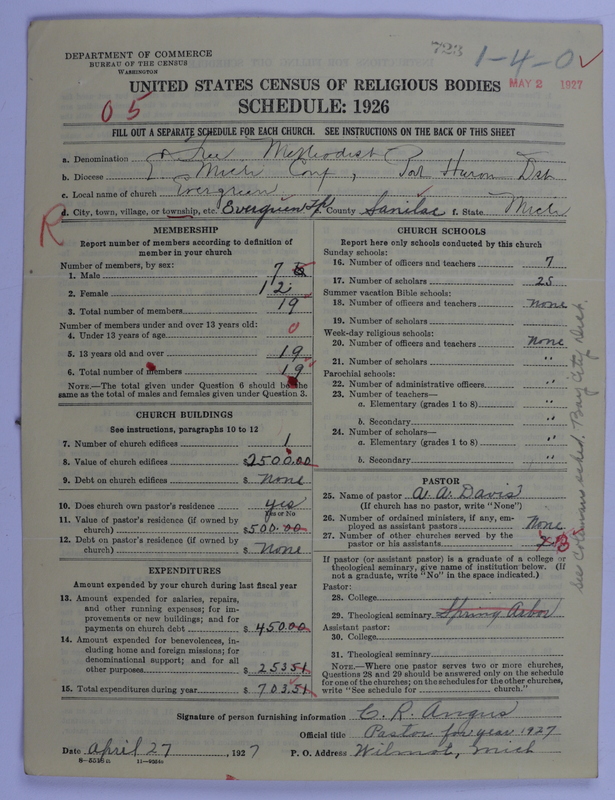 723 1-4-0 ✓
DEPARTMENT OF COMMERCE
BUREAU OF THE CENSUS
WASHINGTON
UNITED STATES CENSUS OF RELIGIOUS BODIES MAY 2 1927
05
SCHEDULE: 1926
FILL OUT A SEPARATE SCHEDULE FOR EACH CHURCH. SEE INSTRUCTIONS ON THE BACK OF THIS SHEET
a. Denomination Free Methodist
b. Diocese Mich Conf, Port Huron Dst
c. Local name of church Evergreen
d. City, town, village, or township, etc. Evergreen Tp. County Sanilac f. State Mich
R
MEMBERSHIP
Report number of members according to definition of member in your church
Number of members, by sex:
1. Male 7
2. Female 12
3. Total number of members 19
Number of members under and over 13 years old:
4. Under 13 years of age 0
5. 13 years old and over 19
6. Total number of members 19
NOTE.—The total given under Question 6 should be the
same as the total of males and females given under Question 3.
CHURCH BUILDINGS
See instructions, paragraphs 10 to 12
7. Number of church edifices 1
8. Value of church edifices $2500.00
9. Debt on church edifices $ None
10. Does church own pastor's residence? yes
Yes or No
11. Value of pastor's residence (if owned by
church) $500.00
12. Debt on pastor's residence (if owned by
church) $ None
EXPENDITURES
Amount expended by your church during last fiscal year
13. Amount expended for salaries, repairs,
and other running expenses; for im-
provements or new buildings; and for
payments on church debt $ 450.00
14. Amount expended for benevolences, in-
cluding home and foreign missions; for
denominational support; and for all
other purposes $ 253.51
15. Total expenditures during year $ 703.51
CHURCH SCHOOLS
Report here only schools conducted by this church
Sunday schools:
16. Number of officers and teachers 7
17. Number of scholars 25
Summer vacation Bible schools:
18. Number of officers and teachers None
19. Number of scholars
Week-day religious schools:
20. Number of officers and teachers None
21. Number of scholars "
Parochial schools:
22. Number of administrative officers "
23. Number of teachers—
a. Elementary (grades 1 to 8) "
b. Secondary "
24. Number of scholars—
a. Elementary (grades 1 to 8) "
b. Secondary "
PASTOR
25. Name of pastor A. A. Davis
(If church has no pastor, write "None")
26. Number of ordained ministers, if any, em-
ployed as assistant pastors None
27. Number of other churches served by the
pastor or his assistants
If pastor (or assistant pastor) is a graduate of a college or
theological seminary, give name of institution below. (If
not a graduate, write "No" in the space indicated.)
Pastor:
28. College
29. Theological seminary Spring Arbor
Assistant pastor:
30. College
31. Theological seminary
NOTE.—Where one pastor serves two or more churches,
Questions 28 and 29 should be answered only on the schedule
for one of the churches; on the schedules for the other churches,
write "See schedule for church."
see Colemans sched. Bay City Dist.
Signature of person furnishing information C. R. Angus
Official title Pastor for year 1927
Date April 27, 1927 P. O. Address Wilmot, Mich